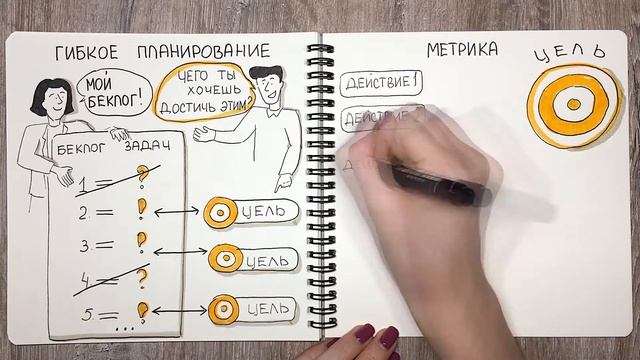 ГИБКОЕ ПЛАНИРОВАНИЕ
МОЙ
БЕКЛОГ!
ЧЕГО ТЫ
ХОЧЕШЬ
ДОСТИЧЬ ЭТИМ?
БЕКЛОГ ЗАДАЧ
1. = ?
2. = !
ЦЕЛЬ
3. = !
ЦЕЛЬ
4. = ?
5. = !
ЦЕЛЬ
...
МЕТРИКА
ЦЕЛЬ
ДЕЙСТВИЕ 1
ДЕЙСТВИЕ